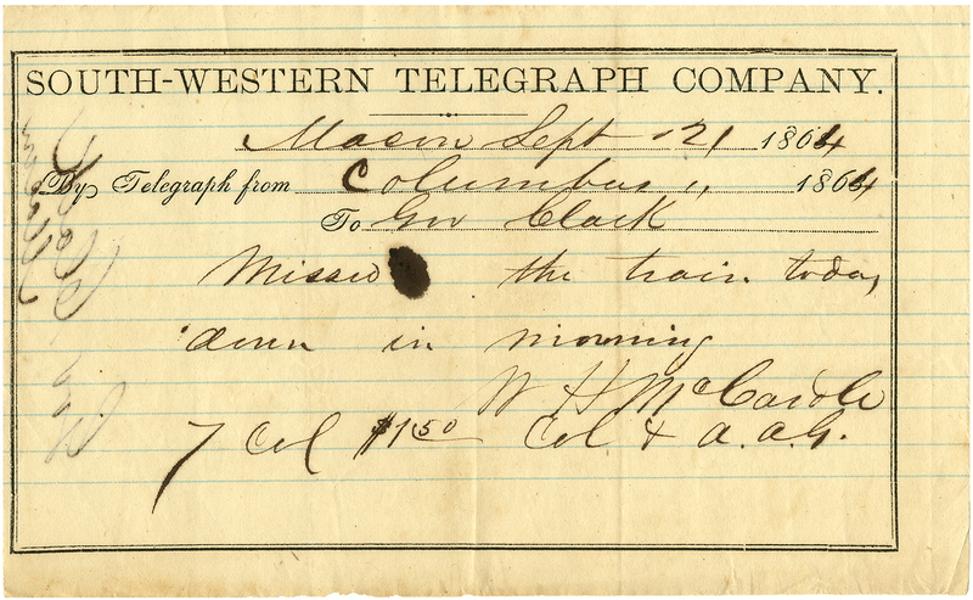 SOUTH-WESTERN TELEGRAPH COMPANY.
Macon Sept 21 1864
By Telegraph from Columbus " 1864
To Gov Clark
Missed the train today
down in morning
W H McCardle
7 Col $1.50 Col & a.a.G.